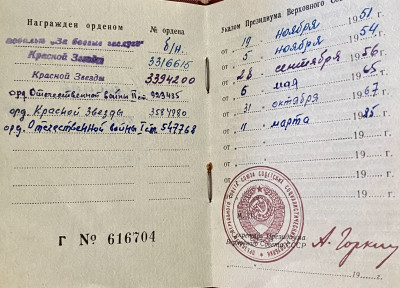 Награжден орденом
№ ордена
медалью "За боевые заслуги" б/н.
Красной Звезды 3316615
Красной Звезды 3394200
орд. Отечественной войны IIст. 929435
орд. Красной Звезды 3587980
орд. Отечественной войны Iст. 547768
Г № 616704
Указом Президиума Верховного
от 19 ноября 1951
от 5 ноября 1954
от 28 сентября 1956
от 6 мая 1965
от 31 октября 1967
от 11 марта 1985
от 19 г.
от 19 г.
19 г.
19 г.
Секретарь Президиума
Верховного Совета СССР
А. Горкин